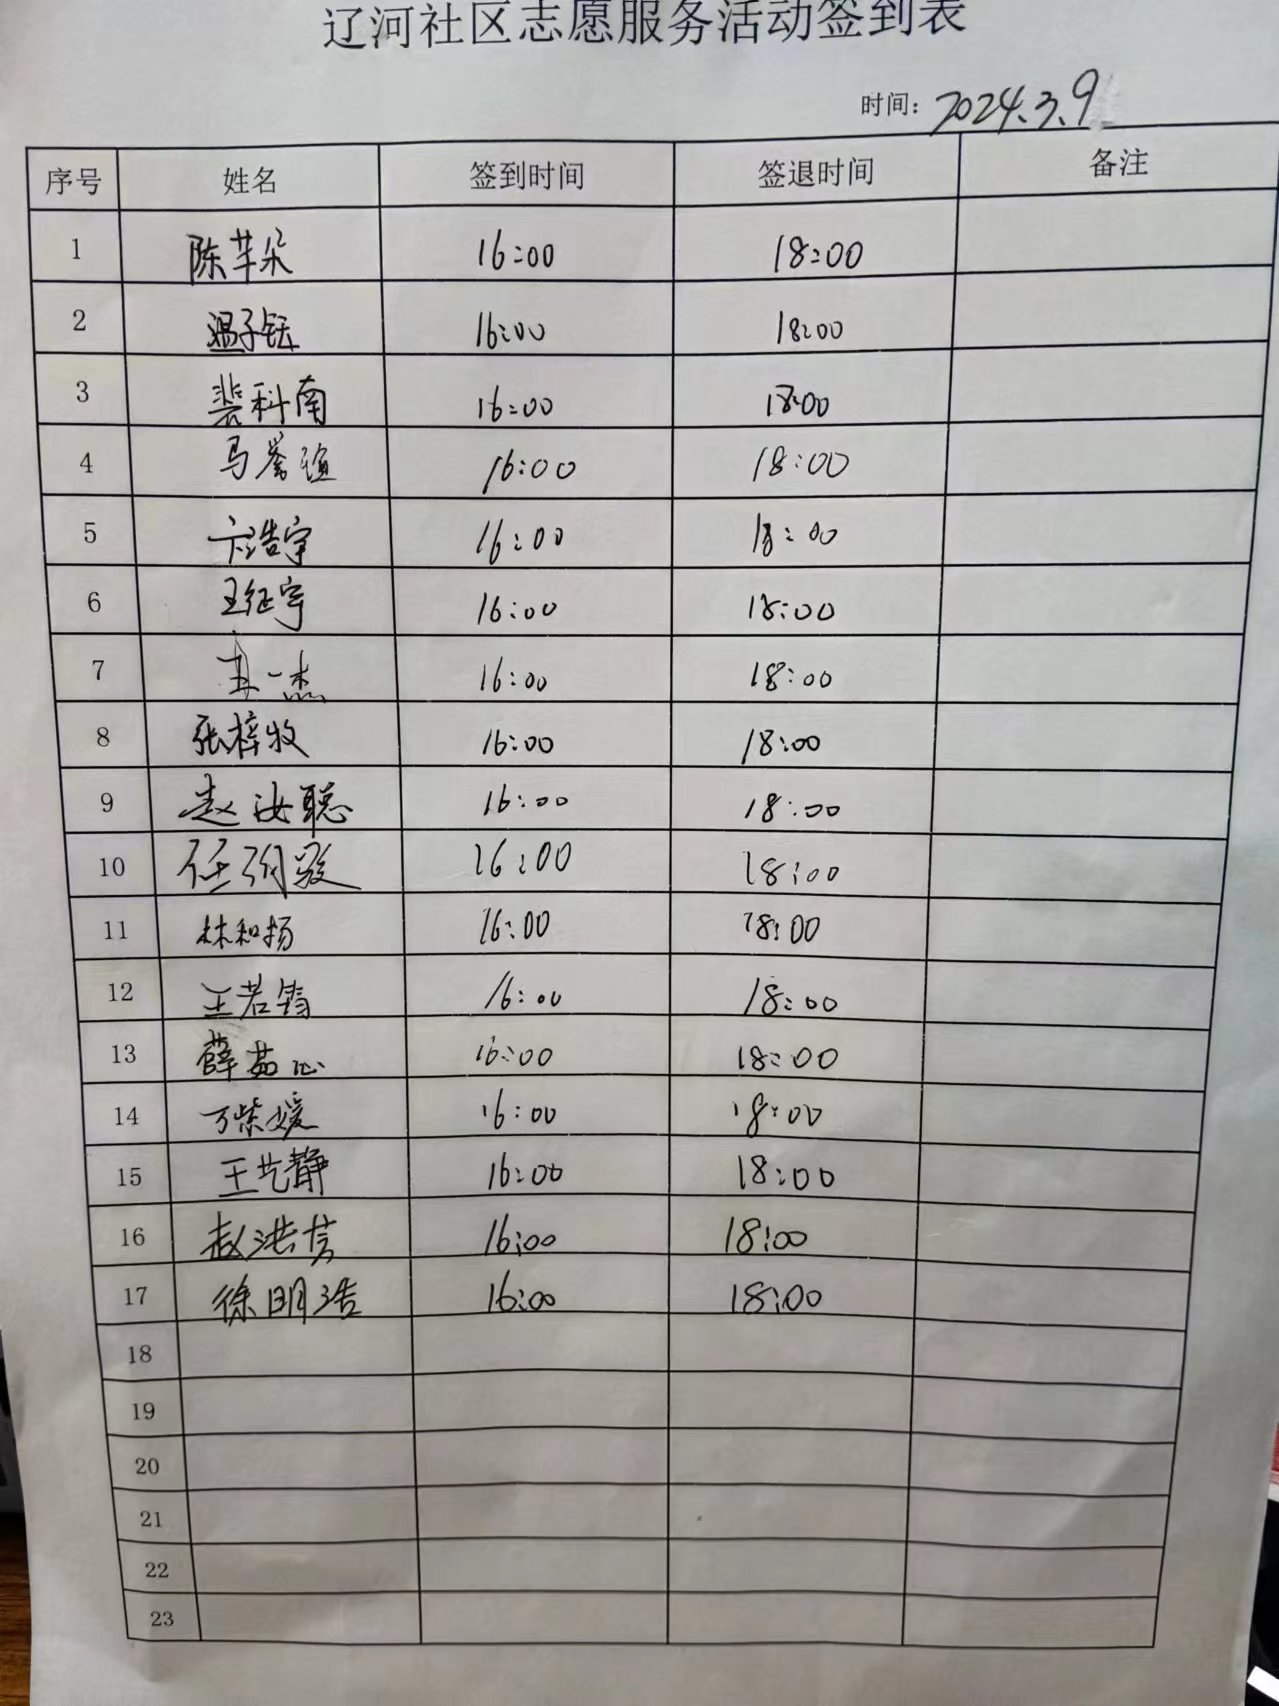 辽河社区志愿服务活动签到表
时间：2024.3.9
序号 姓名 签到时间 签退时间 备注
1 陈芊朵 16:00 18:00
2 温子钰 16:00 18:00
3 裴科南 16:00 18:00
4 马誉 16:00 18:00
5 卞浩宇 16:00 18:00
6 王征宇 16:00 18:00
7 一杰 16:00 18:00
8 张梓牧 16:00 18:00
9 赵汝聪 16:00 18:00
10 任 16:00 18:00
11 林和扬 16:00 18:00
12 王若筠 16:00 18:00
13 薛茹心 16:00 18:00
14 万紫媛 16:00 18:00
15 王艺静 16:00 18:00
16 赵洪 16:00 18:00
17 徐明浩 16:00 18:00
18
19
20
21
22
23